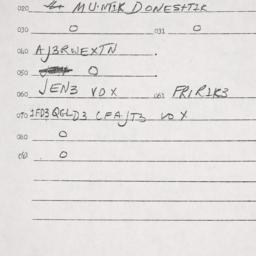 020 MUNTIK DONESHTIK
030 0 031 0
040 AJ3RWEXTN
050 0
060 JEN3 VOX 061 FRIRIK3
070 1FD3QGLD3 CFAJT3 VOX
080 0
0